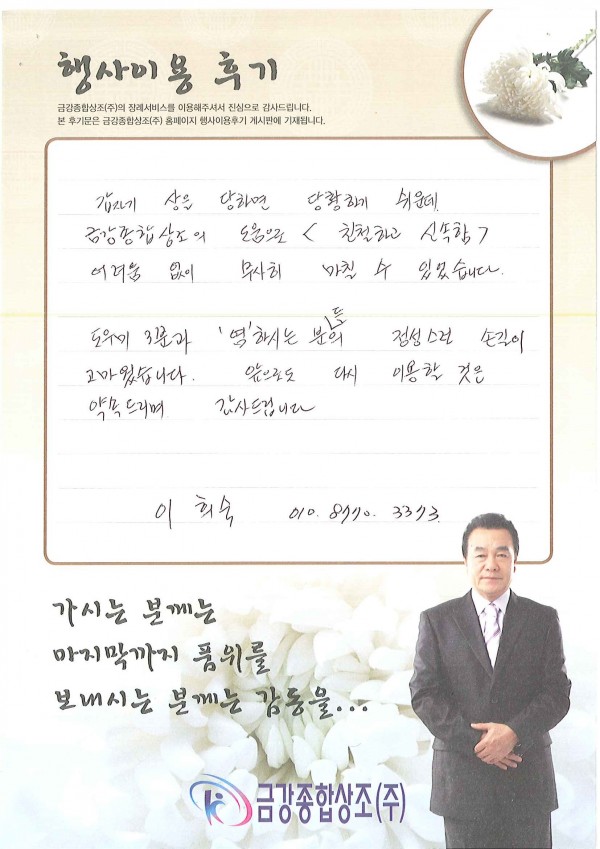 행사이용 후기
금강종합상조(주)의 장례서비스를 이용해주셔서 진심으로 감사드립니다.
본 후기문은 금강종합상조(주) 홈페이지 행사이용후기 게시판에 기재됩니다.
갑자기 상을 당하면 당황하기 쉬운데
금강종합상조의 도움으로 < 친절하고 신속함 >
어려움 없이 무사히 마칠 수 있었습니다.
도우미 3분과 '염'하시는 분들의 정성스런 손길이
고마웠습니다. 앞으로도 다시 이용할 것은
약속드리며 감사드립니다
이 희숙 010. 8770. 3373.
가시는 분께는
마지막까지 품위를
보내시는 분께는 감동을...
금강종합상조(주)